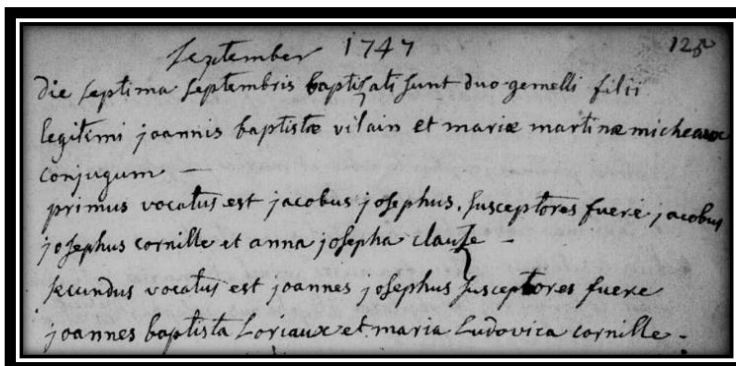 September 1747 125
die septima septembris baptizati sunt duo gemelli filii
legitimi joannis baptistæ vilain et mariæ martinæ micheaux
conjugum —
primus vocatus est jacobus josephus, susceptores fuere jacobus
josephus cornille et anna josepha clauze -
secundus vocatus est joannes josephus susceptores fuere
joannes baptista Loriaux et maria Ludovica cornille -